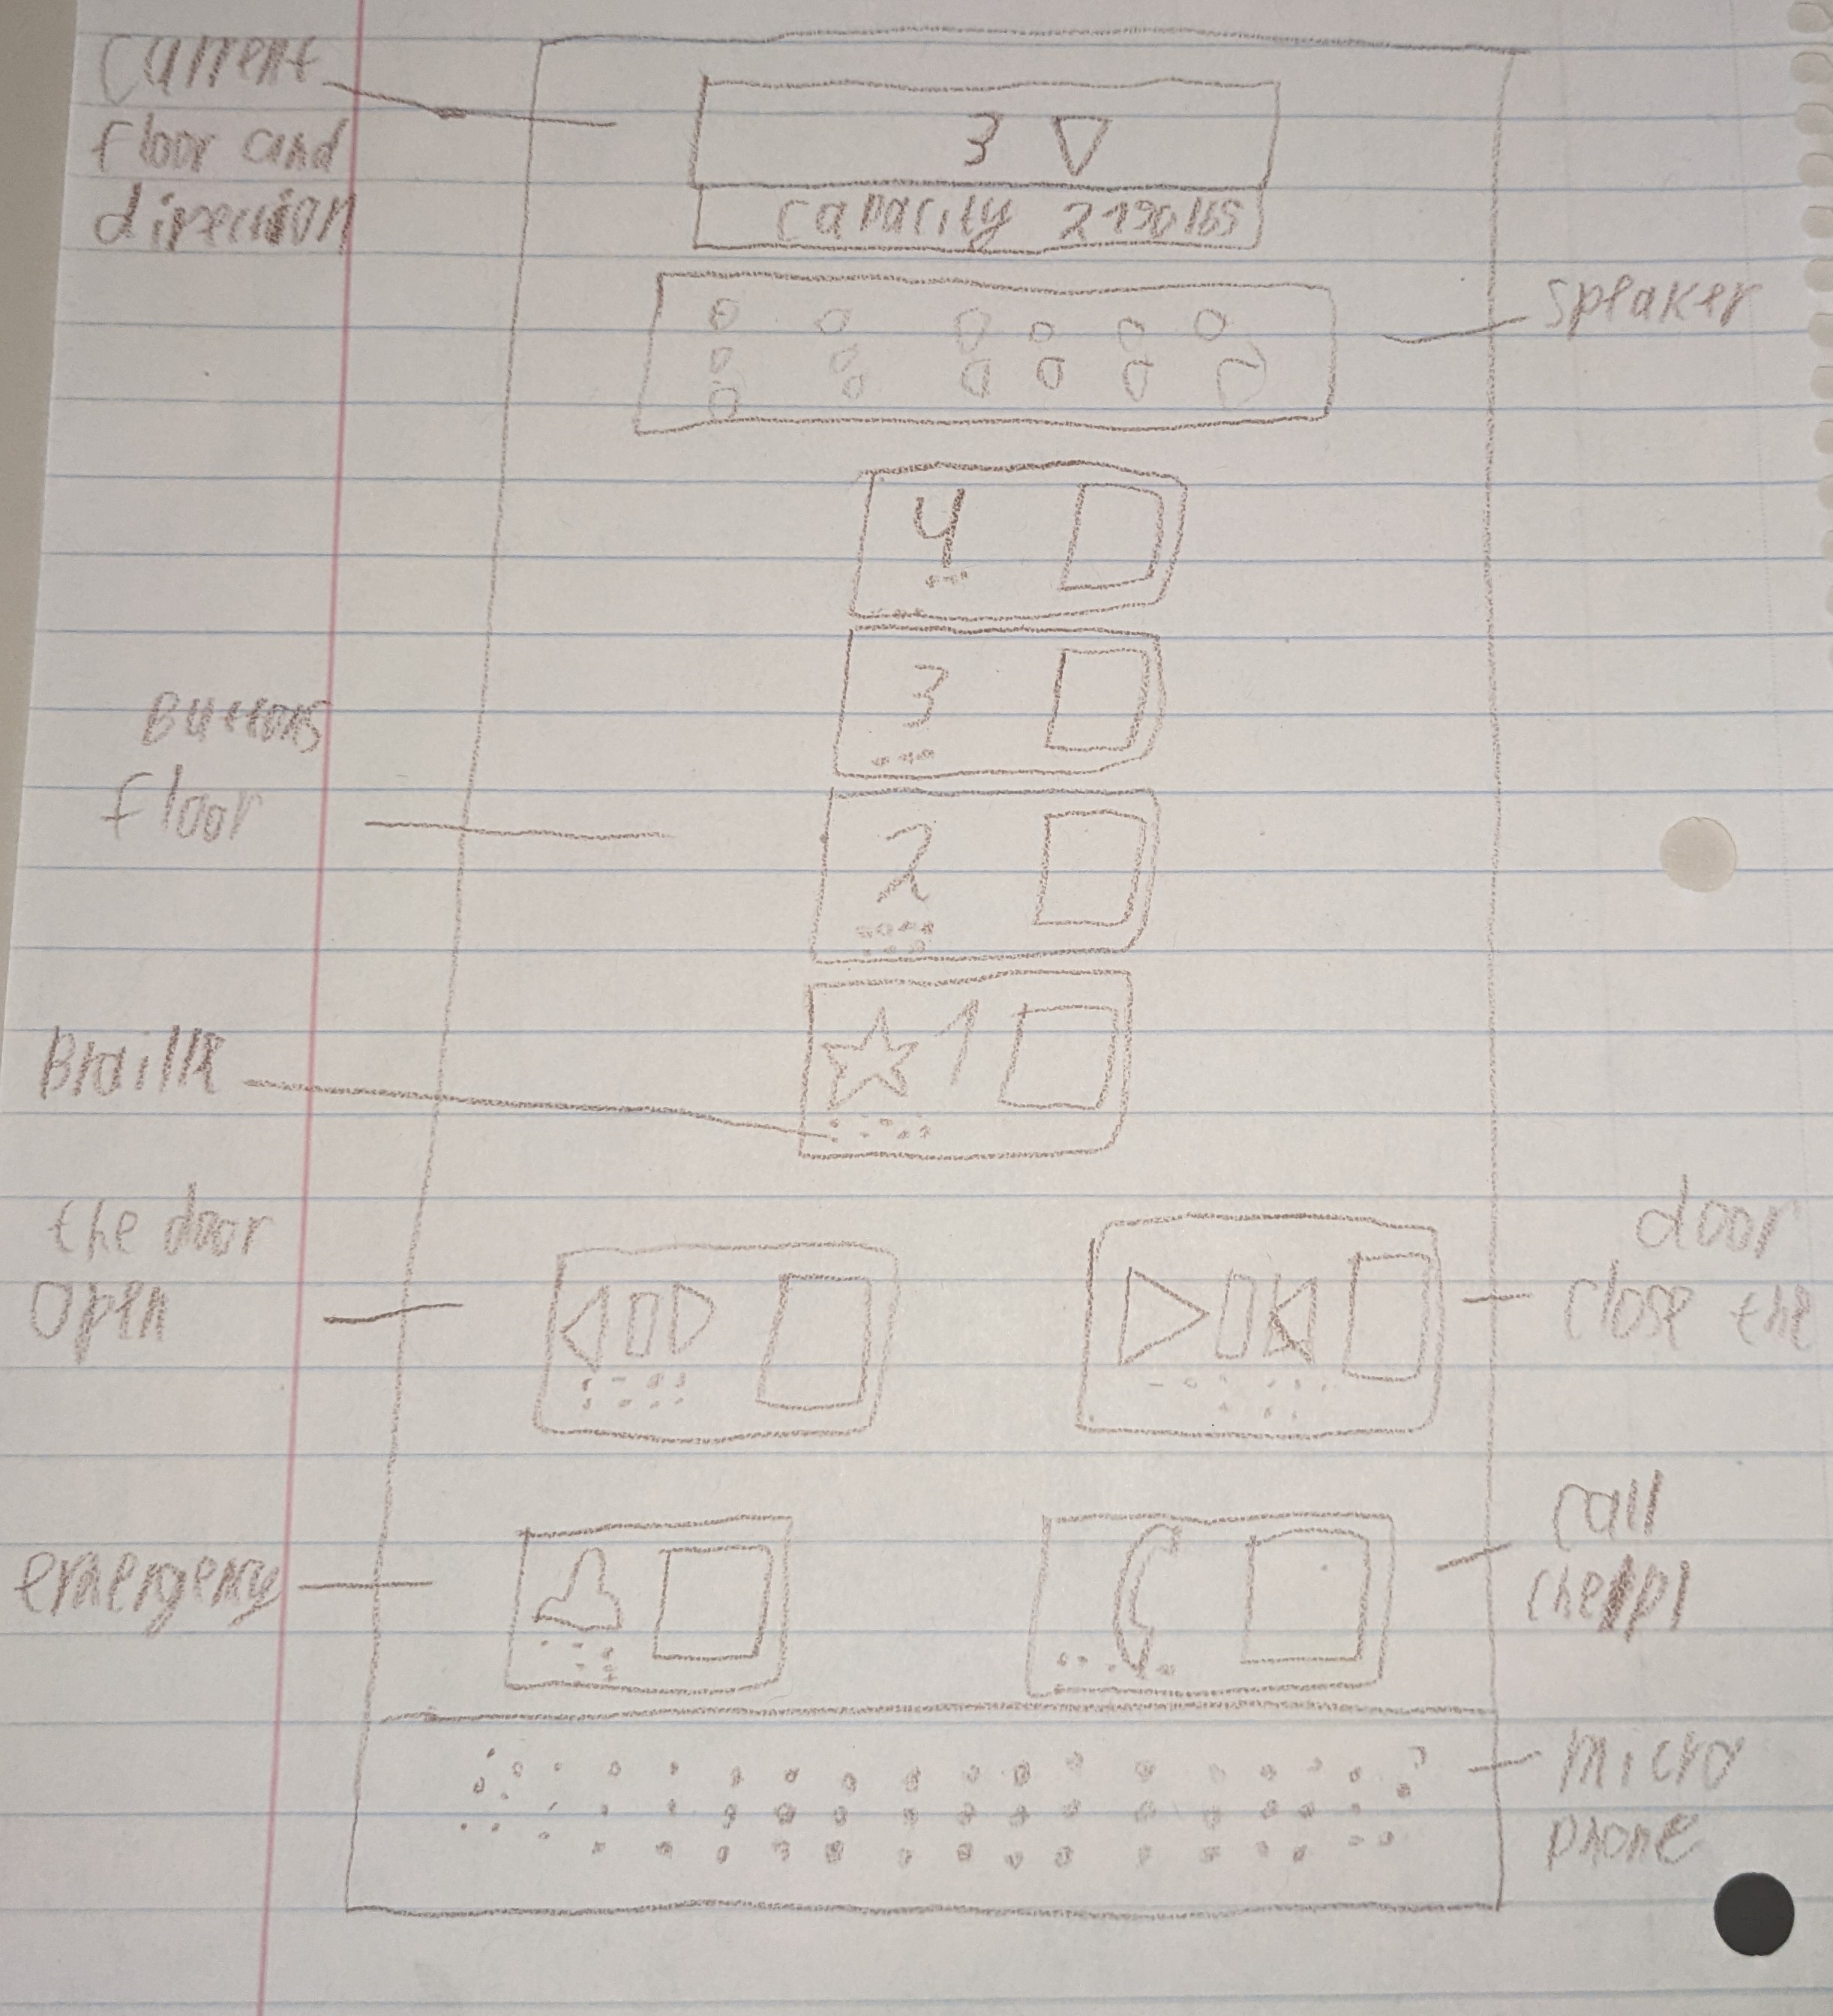 Current
floor and
direction
3
Capacity 2190 lbs
Speaker
4
3
Buttons
floor
2
1
Braille
the door
open
door
close the
emergency
call
micro
phone